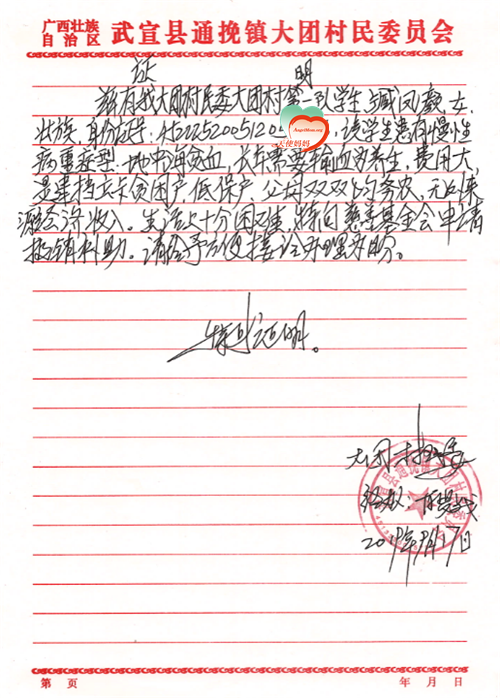 广西壮族自治区 武宣县通挽镇大团村民委员会
证 明
兹有我大团村民委大团村第 队学生 凤颖,女,
壮族,身份证号:45222520051202 天使妈妈 ,该学生患有慢性
病重症型-地中海贫血,长年需要输血为生,费用大,
是建档立卡贫困户,低保户,父母双双 务农,无 来
源经济收入。生活上十分困难,特向慈善基金会申请
报销补助。请给予方便接洽办理为盼。
特此证明。
大团村委
经手:
2019年9月17日
第 页 年 月 日